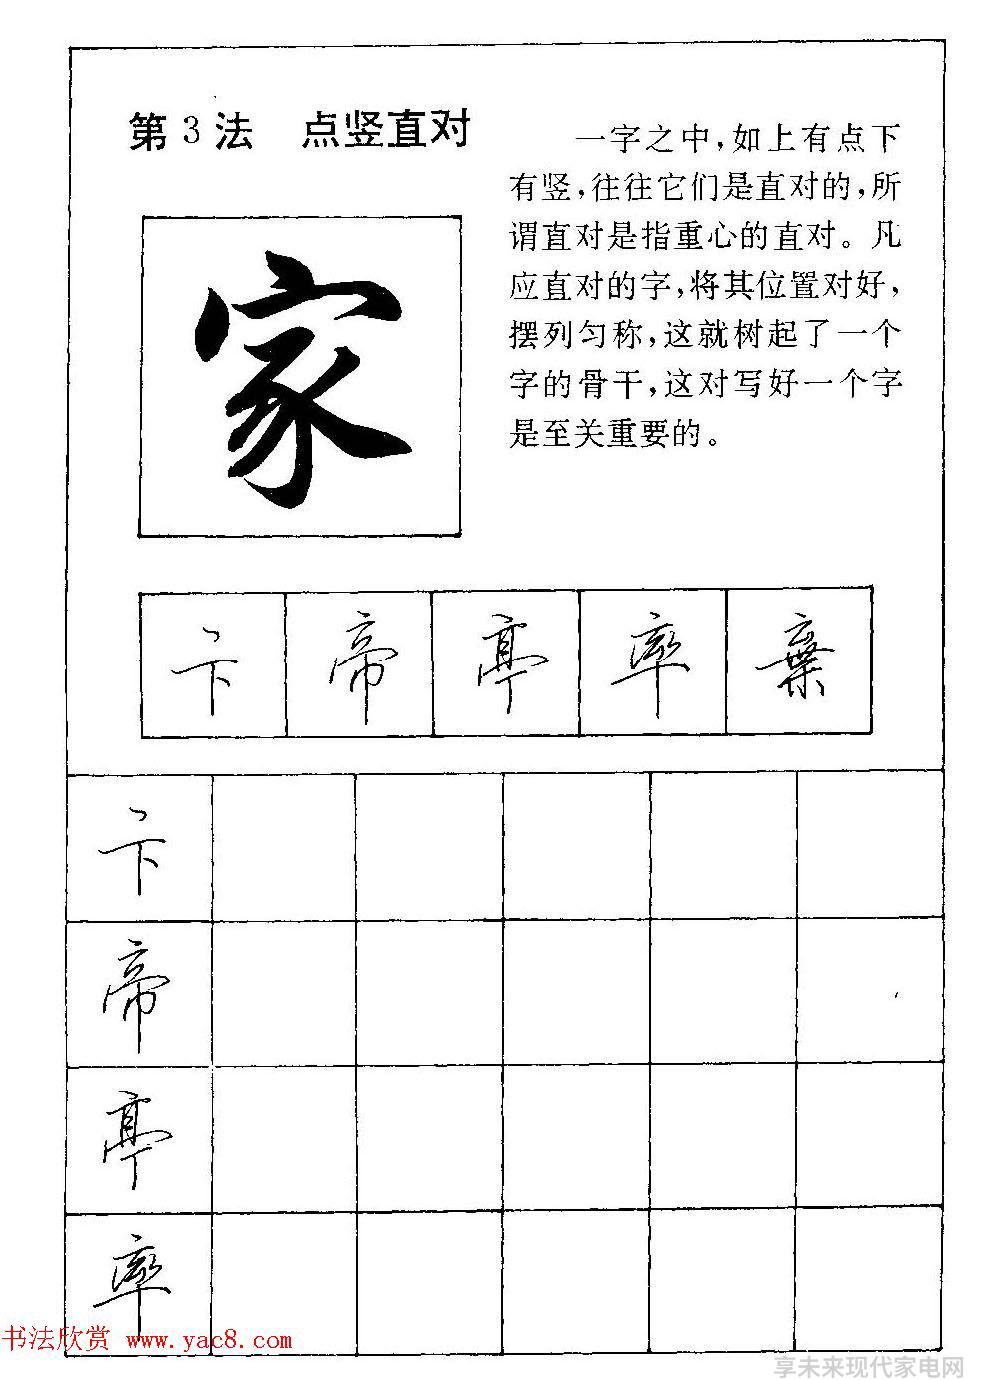 第3法 点竖直对
一字之中，如上有点下
有竖，往往它们是直对的，所
谓直对是指重心的直对。凡
应直对的字，将其位置对好，
摆列匀称，这就树起了一个
字的骨干，这对写好一个字
是至关重要的。
家
卞 帝 亭 率 棄
卞
帝
亭
率
书法欣赏 www.yac8.com
享未来现代家电网